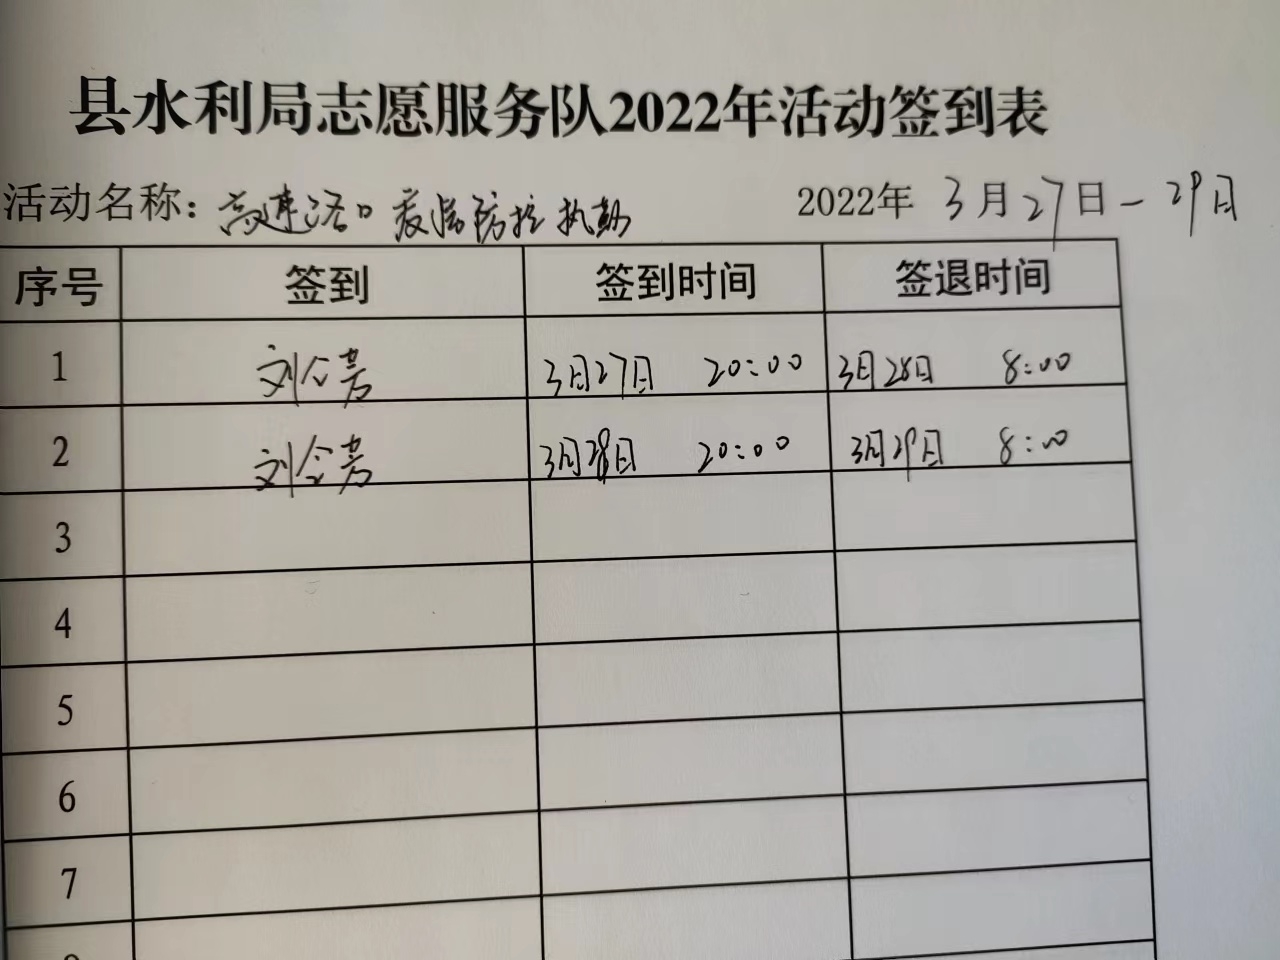 县水利局志愿服务队2022年活动签到表
活动名称：高速路口疫情防控执勤 2022年3月27日-29日
序号 签到 签到时间 签退时间
1 刘 芳 3月27日 20:00 3月28日 8:00
2 刘 芳 3月28日 20:00 3月29日 8:00
3
4
5
6
7